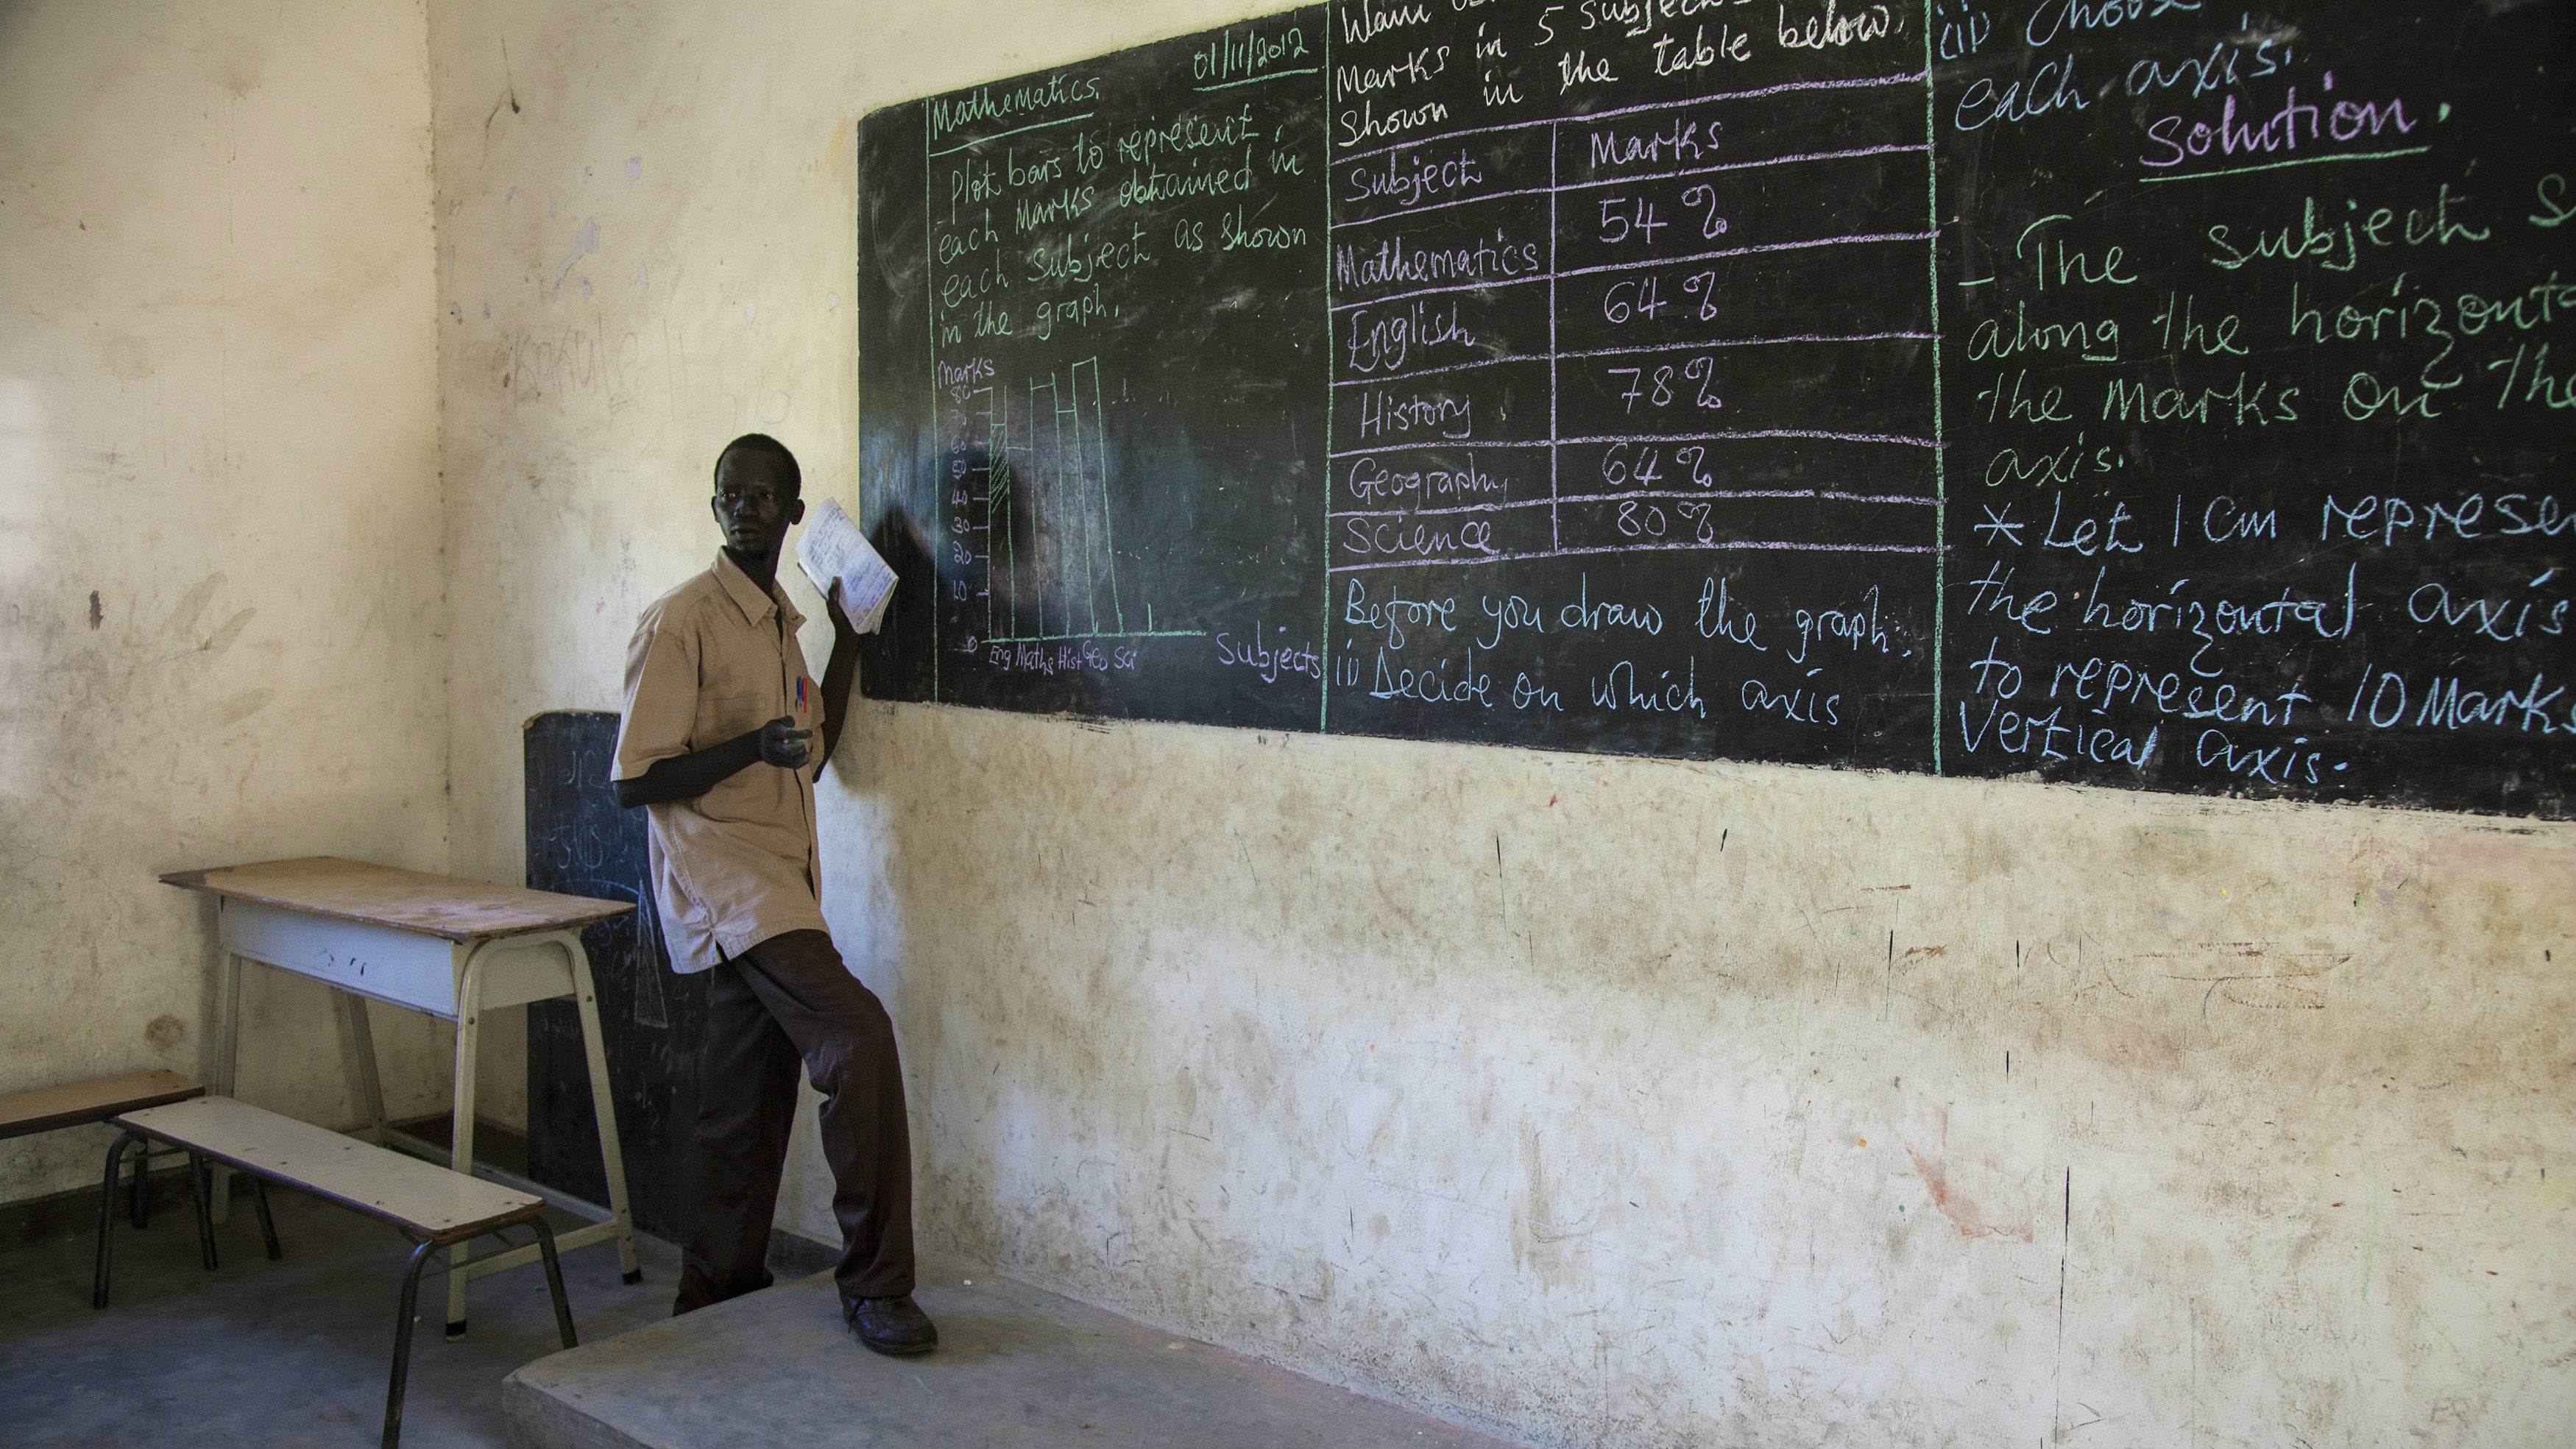 Mathematics.
01/11/2012
- Plot bars to represent
each Marks obtained in
each subject as shown
in the graph.
Marks
80
70
60
50
40
30
20
10
0
Eng Maths Hist Geo Sci
Subjects
Marks in 5 subjects
shown in the table below.
Subject Marks
Mathematics 54%
English 64%
History 78%
Geography 64%
Science 80%
Before you draw the graph.
i) Decide on which axis
(ii) Choose
each axis.
Solution.
- The subject
along the horizont
the Marks on the
axis.
* Let 1 cm represe
the horizontal axis
to represent 10 Marks
Vertical axis.
KAKULE